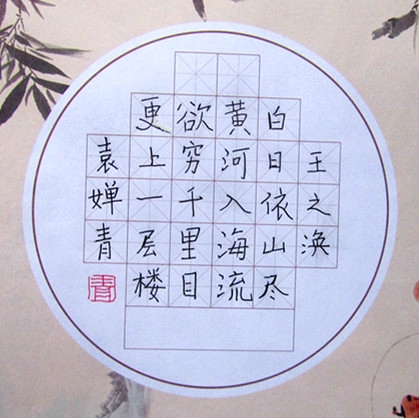 王之涣
白日依山尽
黄河入海流
欲穷千里目
更上一层楼
袁婵青